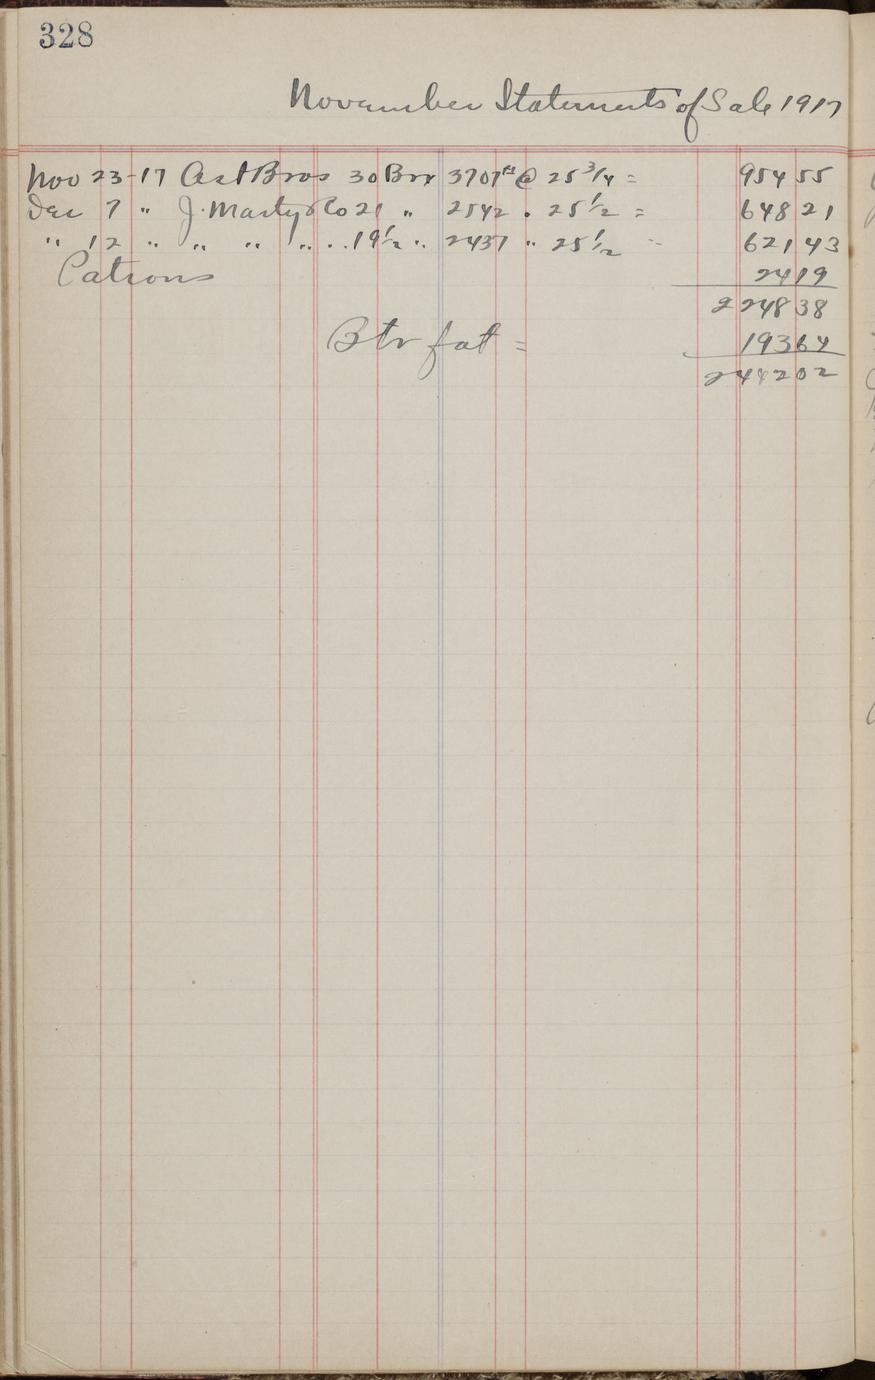 328
November Statements of Sale 1917
Nov 23-17 Ast Bros 30 Bxs 3707# @ 25 3/4 = 954 55
Dec 7 " J. Marty & Co 21 " 2542 " 25 1/2 = 648 21
" 12 " " " " " 19 1/2 " 2437 " 25 1/2 = 621 43
Patrons 24 19
2248 38
Btr fat = 193 64
2442 02